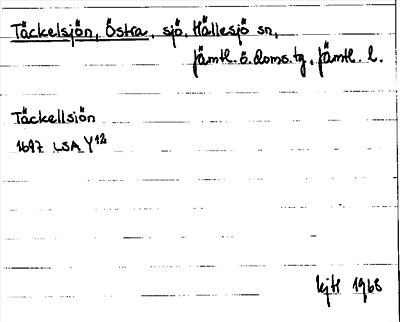 Täckelsjön, Östra, sjö, Hällesjö sn,
Jämtl. ö. doms. tg, Jämtl. l.
Täckellsiön
1697 LSA Y12
1968